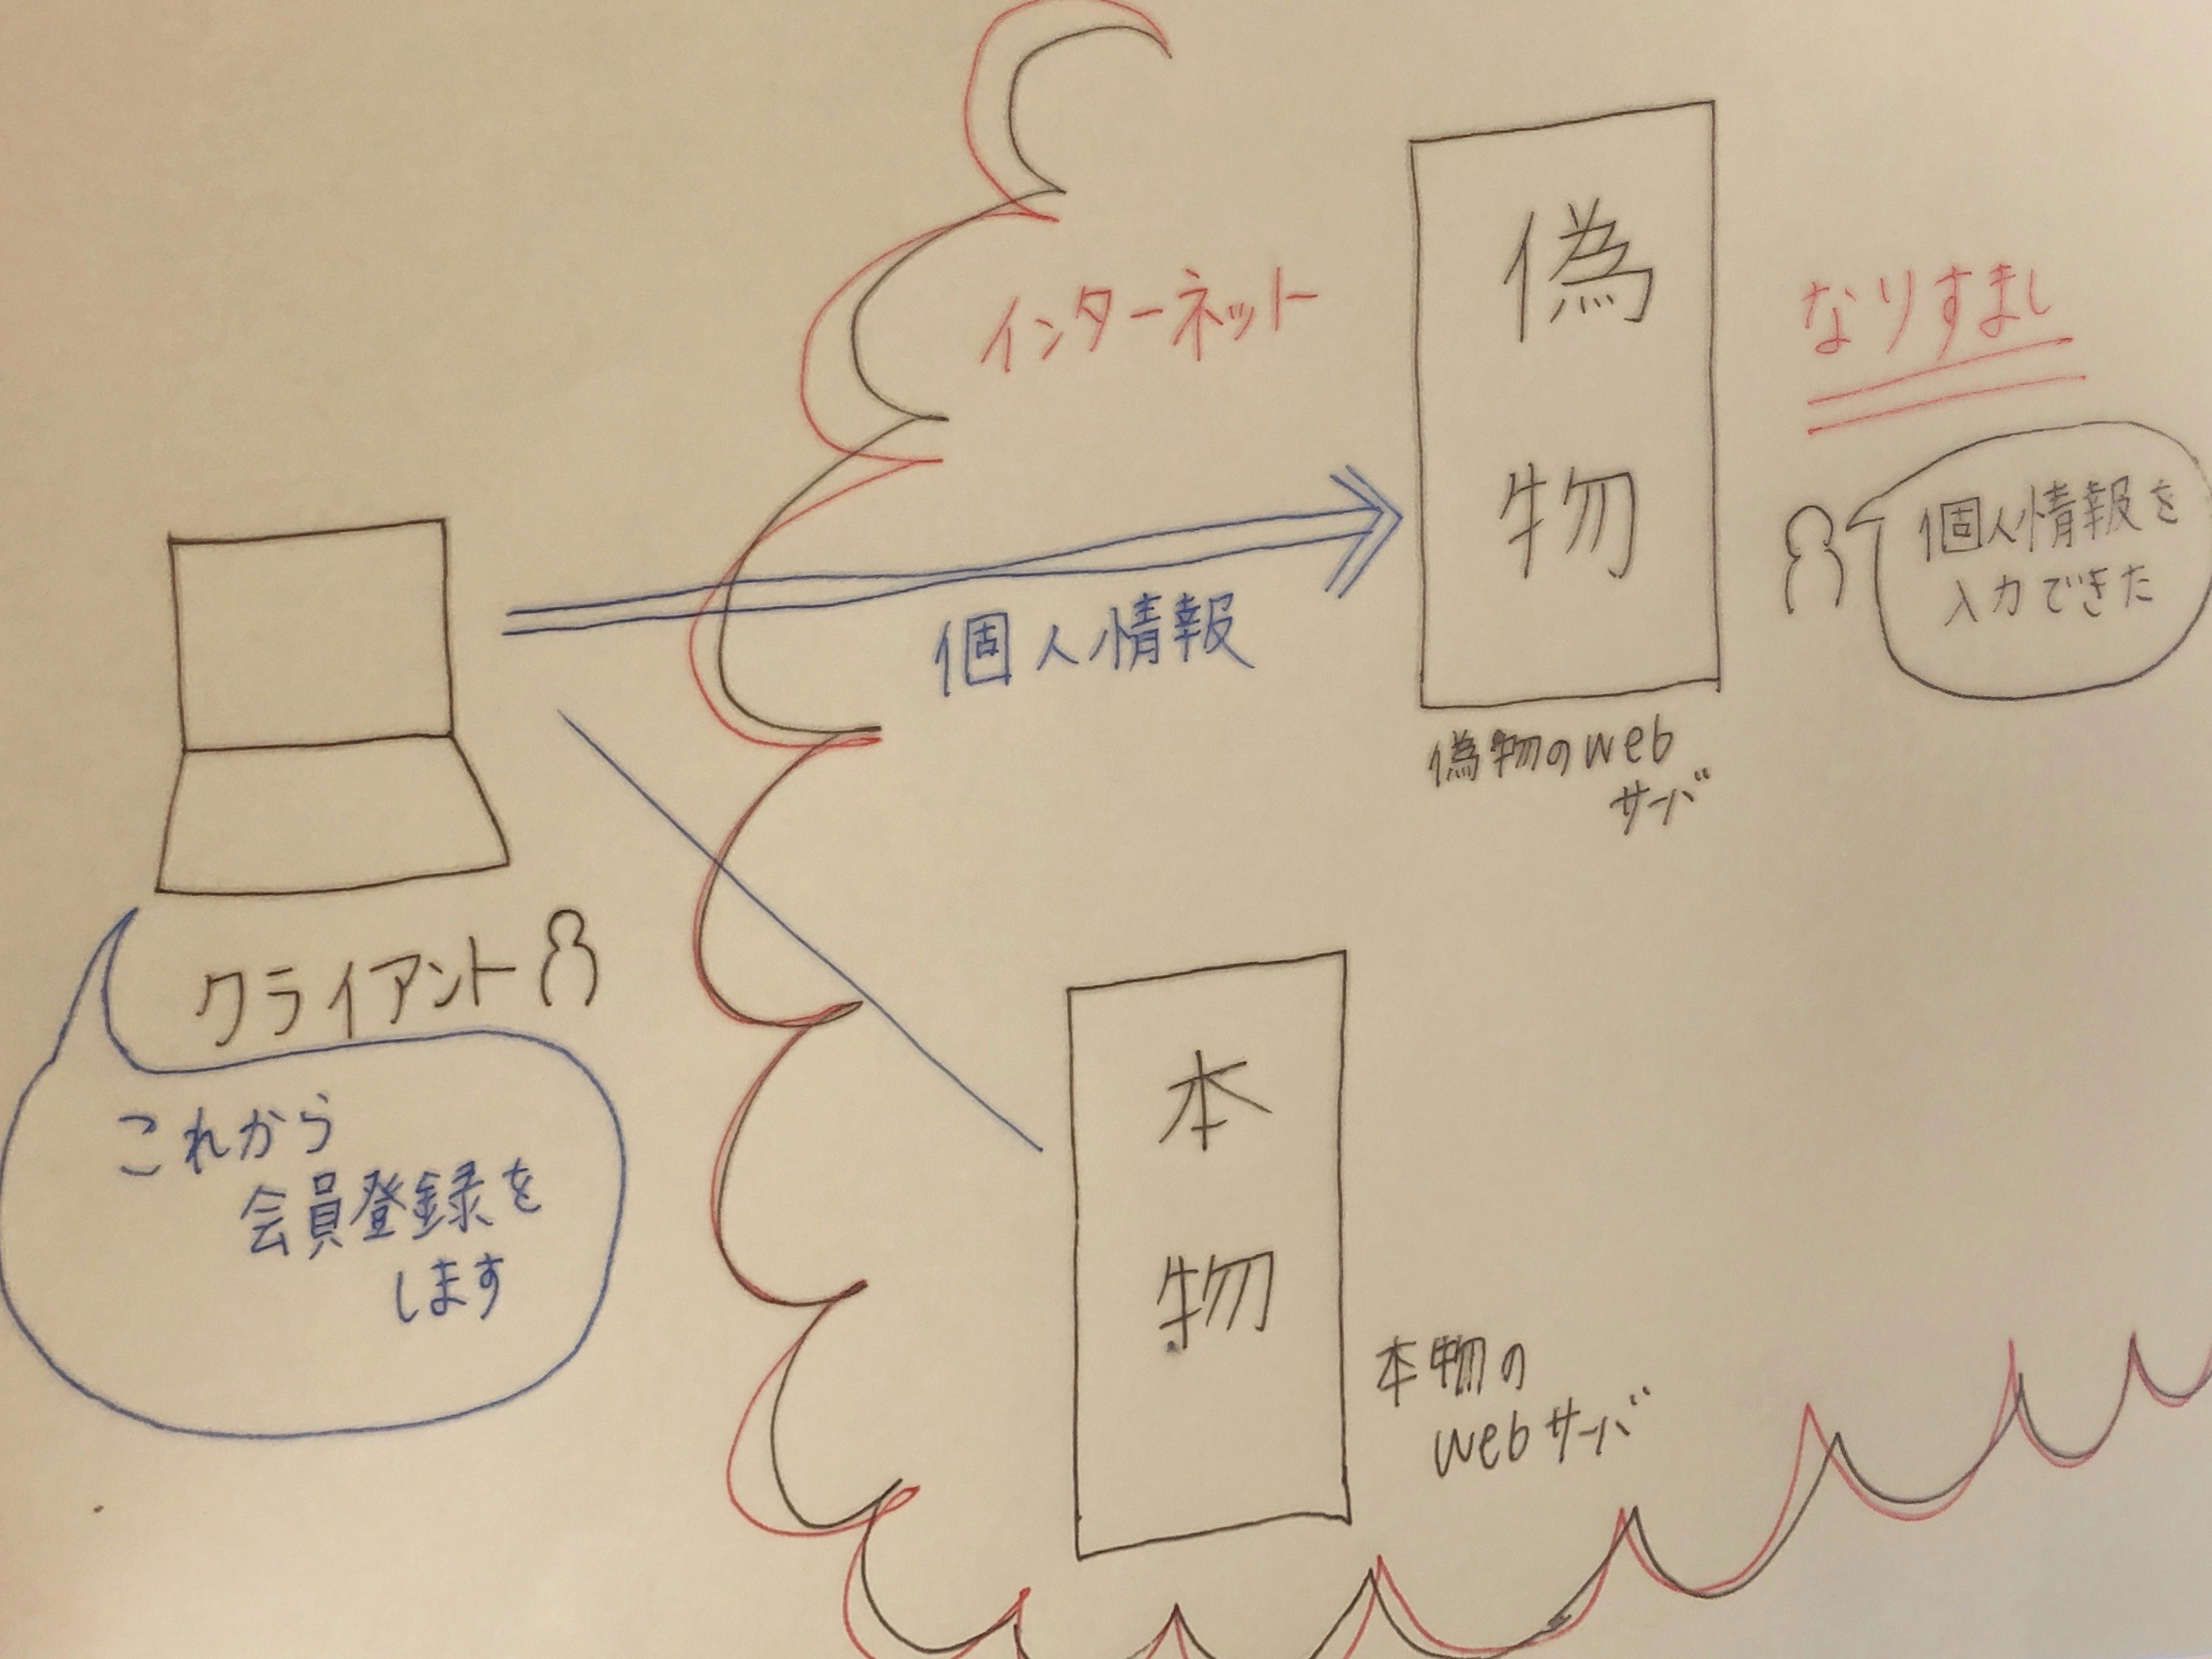 インターネット
偽
物
なりすまし
個人情報を
入力できた
個人情報
偽物のweb
サーバ
クライアント
これから
会員登録を
します
本
物
本物の
webサーバ